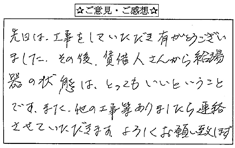 ☆ご意見・ご感想☆
先日は、工事をしていただき有がとうござい
ました。その後、賃借人さんから給湯
器の状態は、とってもいいということ
です。また、他の工事等ありましたら連絡
させていただきます。よろしくお願い致します